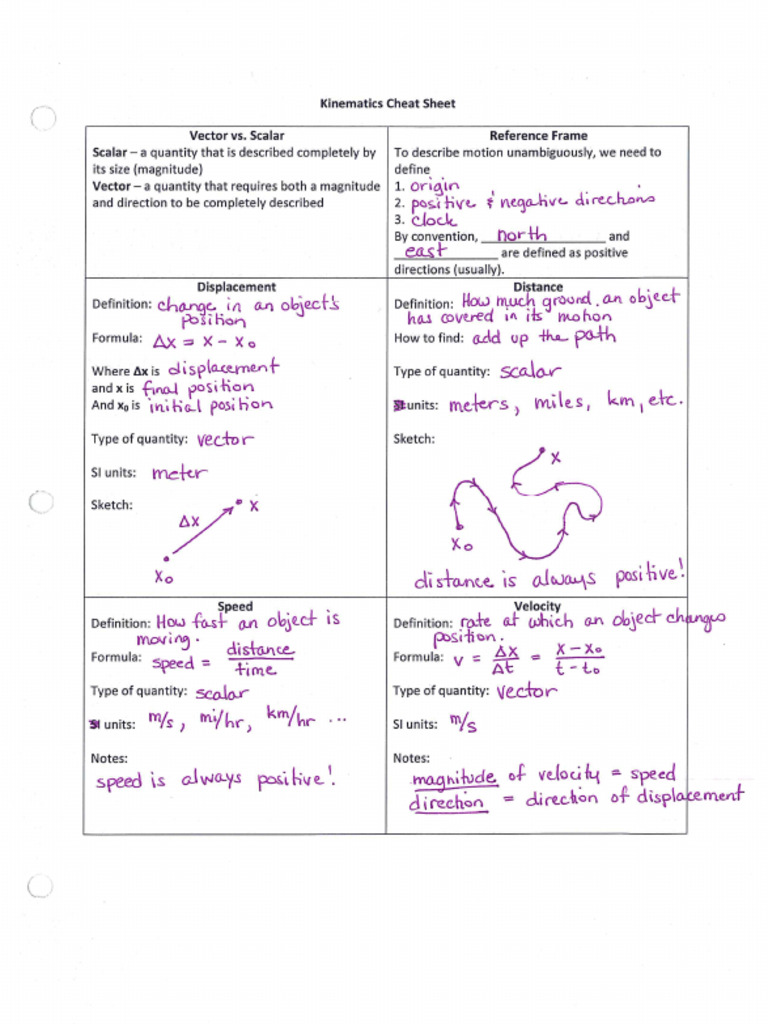 Kinematics Cheat Sheet
Vector vs. Scalar
Scalar – a quantity that is described completely by
its size (magnitude)
Vector – a quantity that requires both a magnitude
and direction to be completely described
Reference Frame
To describe motion unambiguously, we need to
define
1. origin
2. positive & negative directions
3. clock
By convention, north and
east are defined as positive
directions (usually).
Displacement
Definition: change in an object's
position
Formula: Δx = x - x₀
Where Δx is displacement
and x is final position
And x₀ is initial position
Type of quantity: vector
SI units: meter
Sketch:
Δx
x
x₀
Distance
Definition: How much ground an object
has covered in its motion
How to find: add up the path
Type of quantity: scalar
units: meters, miles, km, etc.
Sketch:
x
x₀
distance is always positive!
Speed
Definition: How fast an object is
moving.
Formula: speed = distance / time
Type of quantity: scalar
units: m/s, mi/hr, km/hr ...
Notes:
speed is always positive!
Velocity
Definition: rate at which an object changes
position.
Formula: v = Δx / Δt = x - x₀ / t - t₀
Type of quantity: vector
SI units: m/s
Notes:
magnitude of velocity = speed
direction = direction of displacement